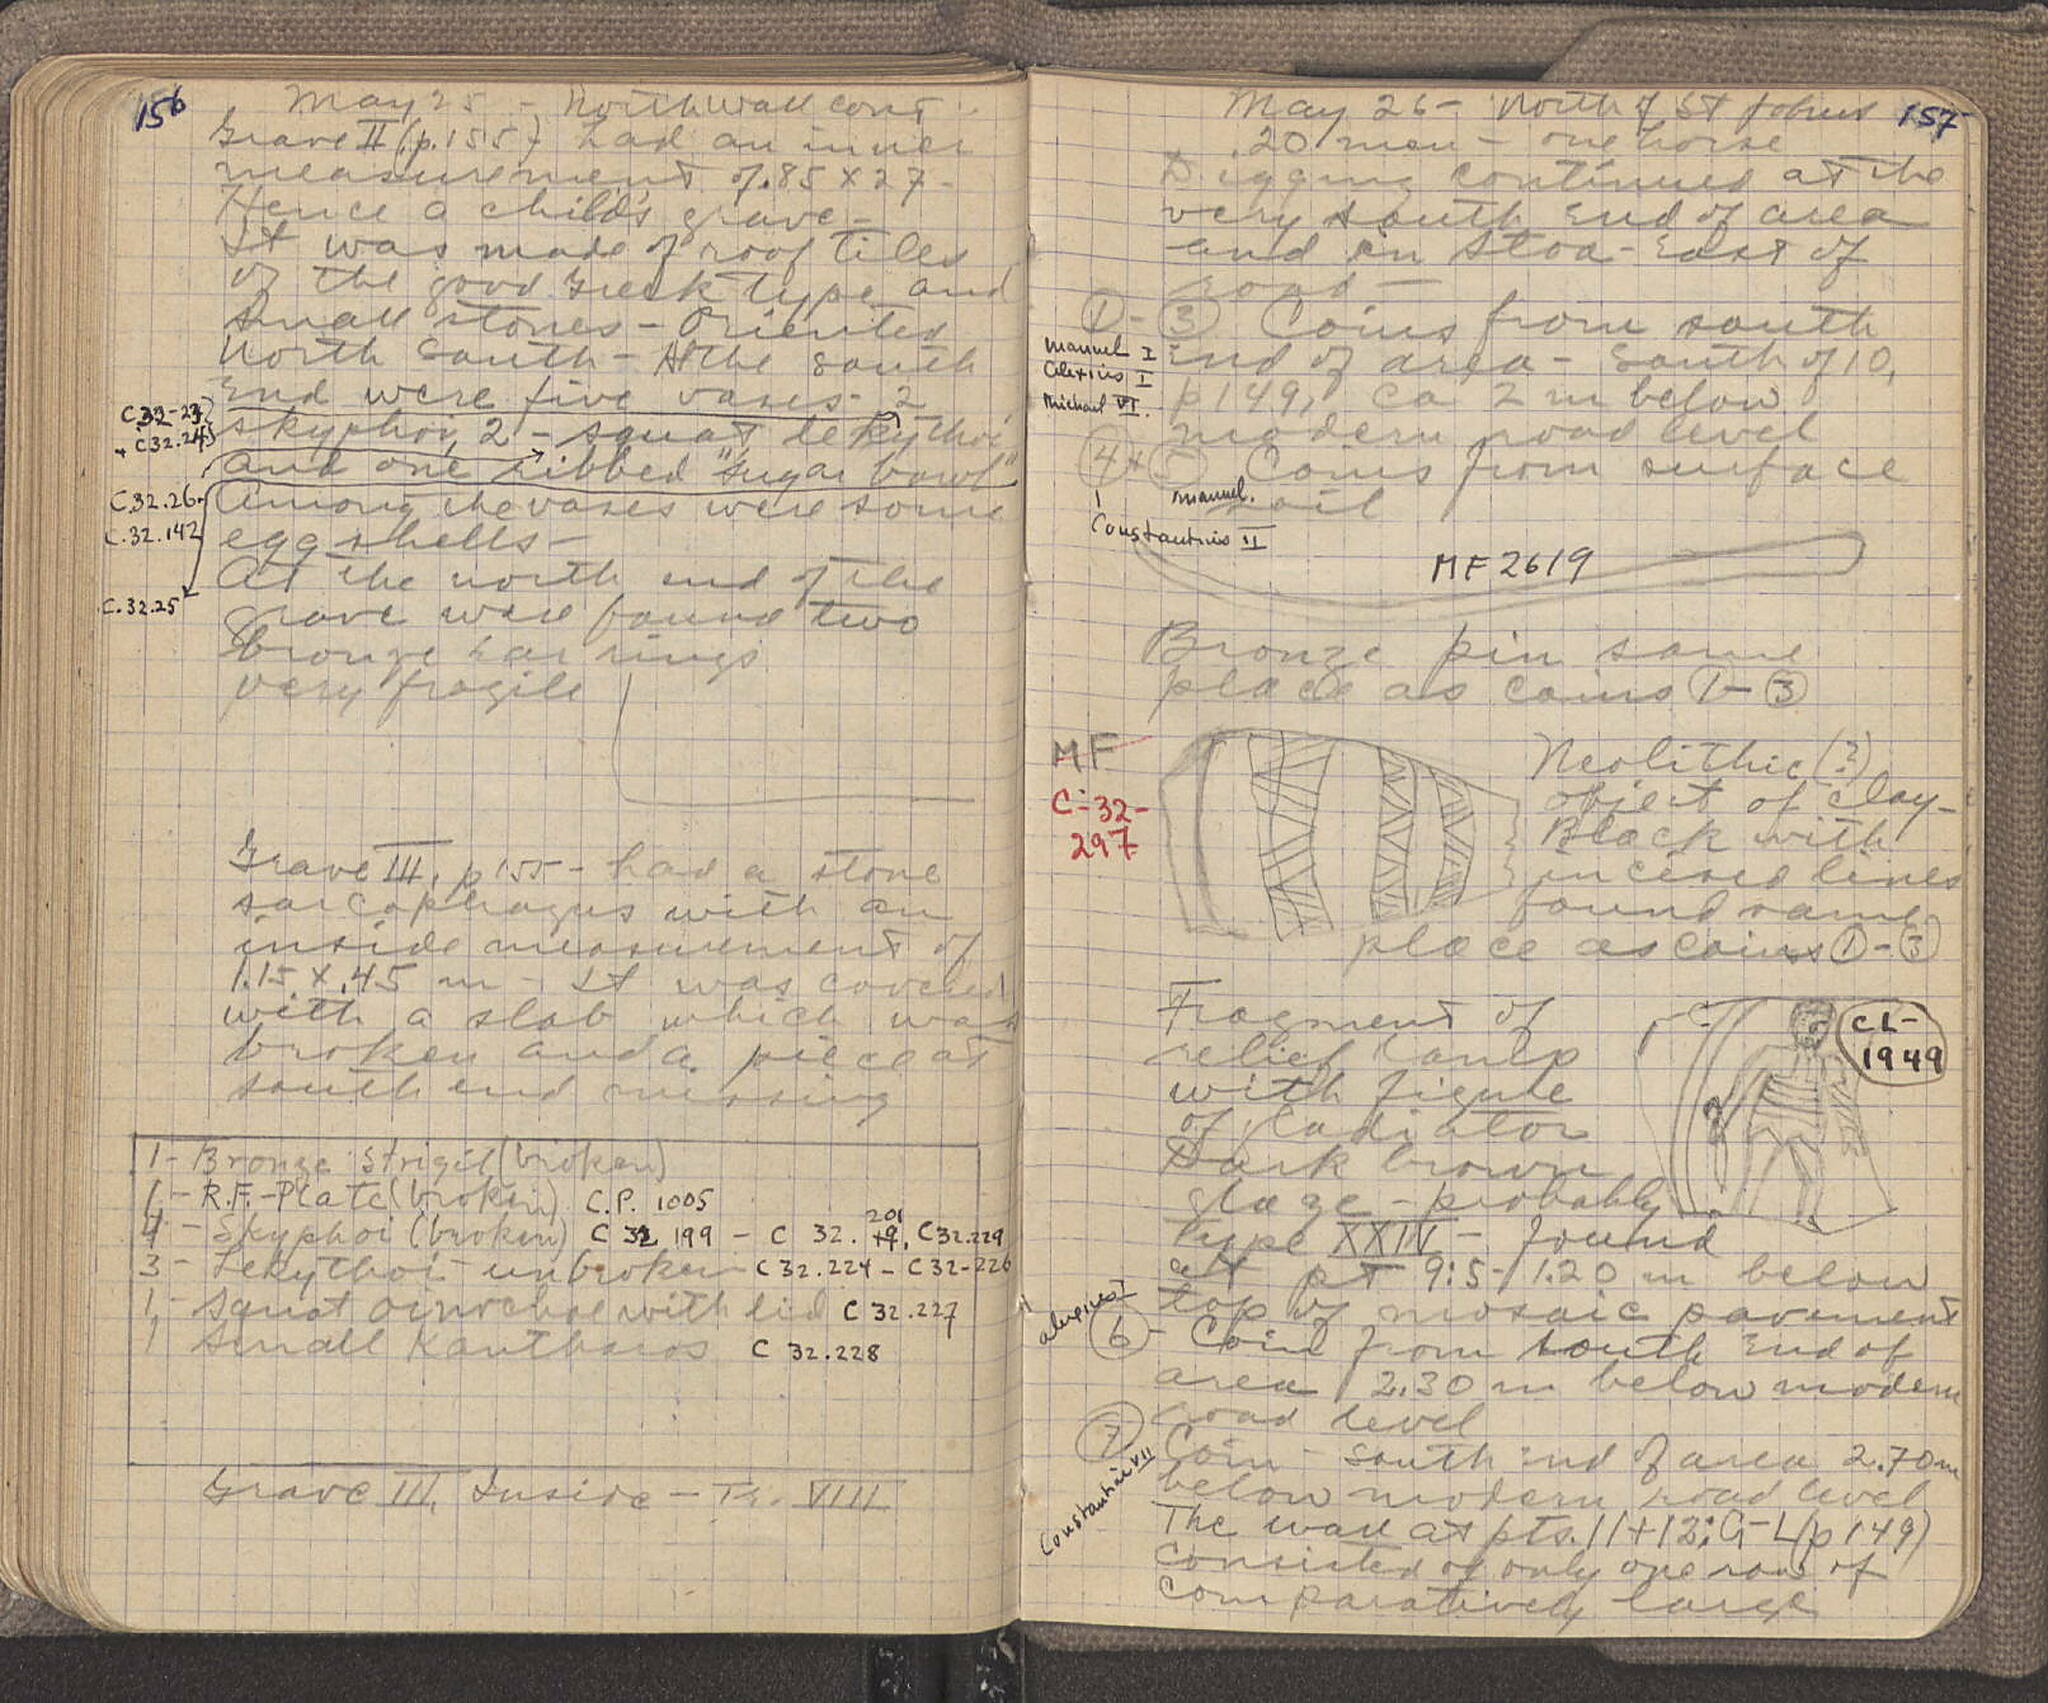 156
May 25 - North Wall cont.
Grave II (p. 155) had an inner
measurement of .85 x 27-
Hence a child's grave-
It was made of roof tiles
of the good Greek type and
small stones - Oriented
North South - At the south
end were five vases- 2
C 32-23
+ C 32.24
skyphoi, 2 - squat lekythoi
and one ribbed "sugar bowl"
C.32.26
C.32.142
C.32.25
Among the vases were some
egg shells-
At the north end of the
grave were found two
bronze ear rings
very fragile
Grave III, p 155 - had a stone
sarcophagus with an
inside measurement of
1.15 x .45 m - It was covered
with a slab which was
broken and a piece at
south end missing
1 - Bronze Strigil (broken)
1 - R.F.-Plate (broken) C.P. 1005
4 - Skyphoi (broken) C 32 199 - C 32. 201, C32.229
3 - Lekythoi - unbroken C 32.224 - C 32-226
1 - Squat oinochoe with lid C 32.227
1 Small Kantharos C 32.228
Grave III, Inside - Tr. VIII
157
May 26 - North of St Johns
20 men - one horse
Digging continues at the
very south end of area
and in Stoa - East of
road -
1 - 3 Coins from south
end of area - south of 10,
p 149, ca 2 m below
modern road level
Manuel I
Alexius I
Michael VI.
4 + 5 Coins from surface
soil
Manuel.
Constantius II
MF 2619
Bronze pin same
place as coins 1 - 3
MF
C-32-
297
Neolithic (?)
object of clay-
Black with
incised lines
found same
place as coins 1 - 3
Fragment of
relief lamp
with figure
of gladiator
Dark brown
glaze - probably
type XXIV - found
at pt 9:5 - 1.20 m below
top of mosaic pavement
CL-
1949
Alexius I
6 - Coin from south end of
area 2.30 m below modern
road level
7 Coin - south end of area 2.70 m
below modern road level
Constantine VII
The wall at pts. 11+12; G-L (p 149)
consisted of only one row of
comparatively large